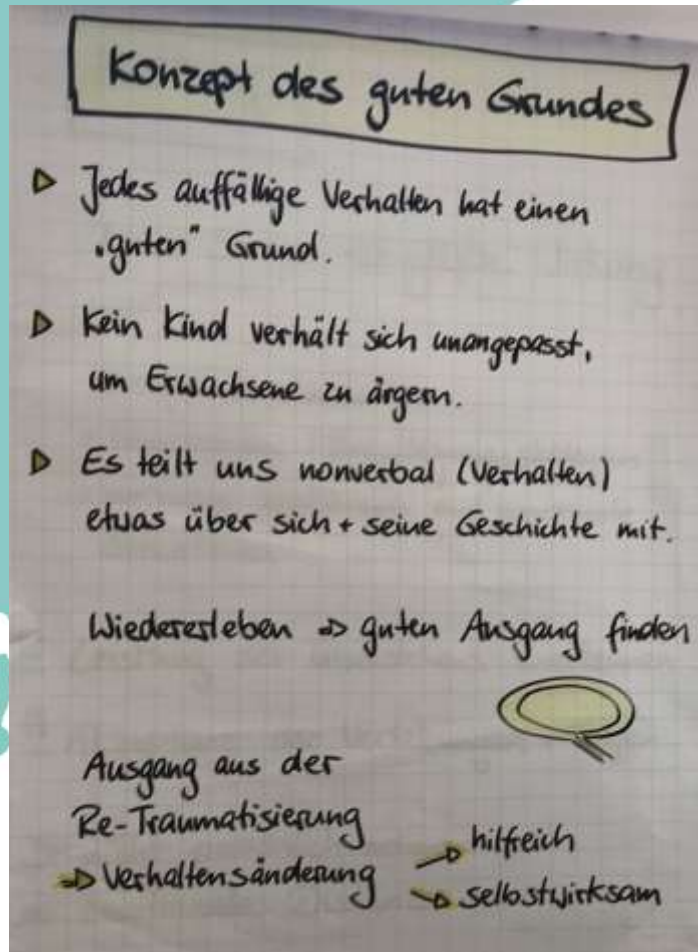 Konzept des guten Grundes
▷ Jedes auffällige Verhalten hat einen
„guten" Grund.
▷ Kein Kind verhält sich unangepasst,
um Erwachsene zu ärgern.
▷ Es teilt uns nonverbal (Verhalten)
etwas über sich + seine Geschichte mit.
Wiedererleben => guten Ausgang finden
Ausgang aus der
Re-Traumatisierung
=> Verhaltensänderung → hilfreich
→ selbstwirksam